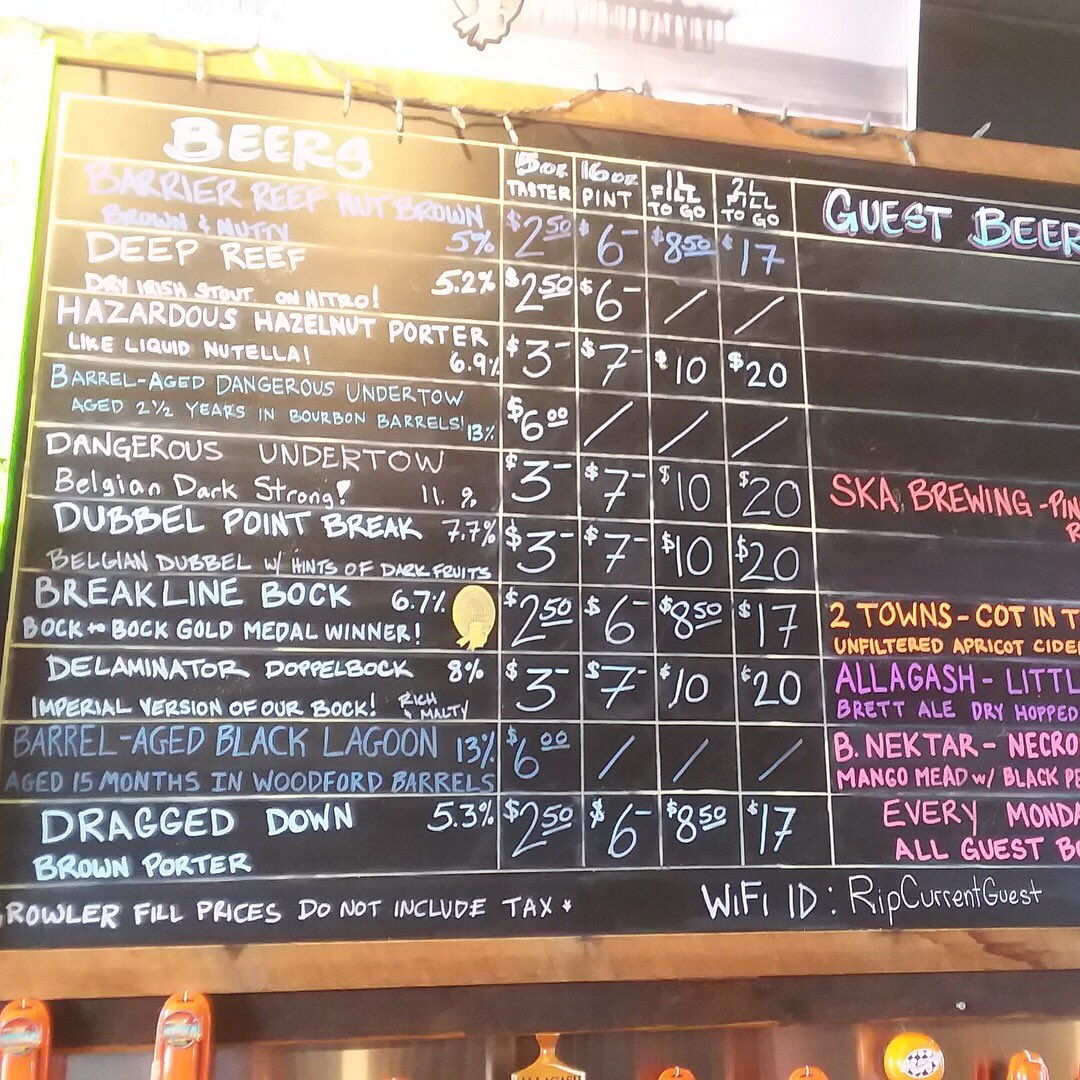 BEERS
5 oz TASTER
16 oz PINT
1L FILL TO GO
2L FILL TO GO
GUEST BEER
BARRIER REEF NUT BROWN
BROWN & NUTTY 5% $2.50 $6- $8.50 $17
DEEP REEF
DRY IRISH STOUT ON NITRO! 5.2% $2.50 $6- / /
HAZARDOUS HAZELNUT PORTER
LIKE LIQUID NUTELLA! 6.9% $3- $7- $10 $20
BARREL-AGED DANGEROUS UNDERTOW
AGED 2½ YEARS IN BOURBON BARRELS! 13% $6.00 / / /
DANGEROUS UNDERTOW
Belgian Dark Strong! 11. % $3- $7- $10 $20
DUBBEL POINT BREAK 7.7% $3- $7- $10 $20
BELGIAN DUBBEL W/ HINTS OF DARK FRUITS
BREAKLINE BOCK 6.7% $2.50 $6- $8.50 $17
BOCK to BOCK GOLD MEDAL WINNER!
DELAMINATOR DOPPELBOCK 8% $3- $7- $10 $20
IMPERIAL VERSION OF OUR BOCK! RICH & MALTY
BARREL-AGED BLACK LAGOON 13% $6.00 / / /
AGED 15 MONTHS IN WOODFORD BARRELS
DRAGGED DOWN 5.3% $2.50 $6- $8.50 $17
BROWN PORTER
SKA BREWING - PIN
R
2 TOWNS - COT IN T
UNFILTERED APRICOT CIDE
ALLAGASH - LITTL
BRETT ALE DRY HOPPED
B. NEKTAR - NECRO
MANGO MEAD w/ BLACK PE
EVERY MONDA
ALL GUEST B
ROWLER FILL PRICES DO NOT INCLUDE TAX *
WiFi ID: RipCurrentGuest
ALLAGASH